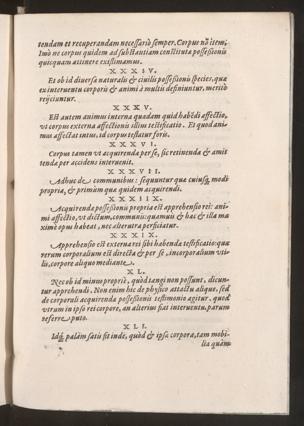 tendam et recuperandam necessariò semper. Corpus nō item;
Imò ne corpus quidem ad substantiam constituta possessionis
quicquam attinere existimamus.
XXXIV.
Et ob id diversa naturalis & civilis possessionis species, quæ
ex interventu corporis & animi à multis definiuntur, meritò
rejiciuntur.
XXXV.
Est autem animus interna quodam quid habēdi affectio,
ut corpus externa affectionis illius testificatio. Et quod ani-
mus affectat intus, id corpus testatur foris.
XXXVI.
Corpus tamen ut acquirenda per se, sic retinenda & amit
tenda per accidens intervenit.
XXXVII.
Adhuc de communibus: sequuntur quæ cuiusq; modi
propria, & primùm quæ quidem acquirendi.
XXXIIX.
Acquirenda possessionis propria est apprehensio rei: ani-
mi affectio, ut dictum, communis: quamvis & hac & illa ma
ximè opus habeat, nec alterutra perficiatur.
XXXIX.
Apprehensio est externa rei sibi habenda testificatio: quæ
rerum corporalium est directa & per se, incorporalium uti-
lis, corpore aliquo mediante.
XL.
Nec ob id minus propriè, quòd tangi non possunt, dicun-
tur apprehendi. Non enim hic de physico attactu aliquo, sed
de corporali acquirenda possessionis testimonio agitur. quod
utrum in ipsa rei corpore, an alterius fiat interventu, parum
referre puto.
XLI.
Idq; palàm satis fit inde, quòd & ipsa corpora, tam mobi-
lia quàm